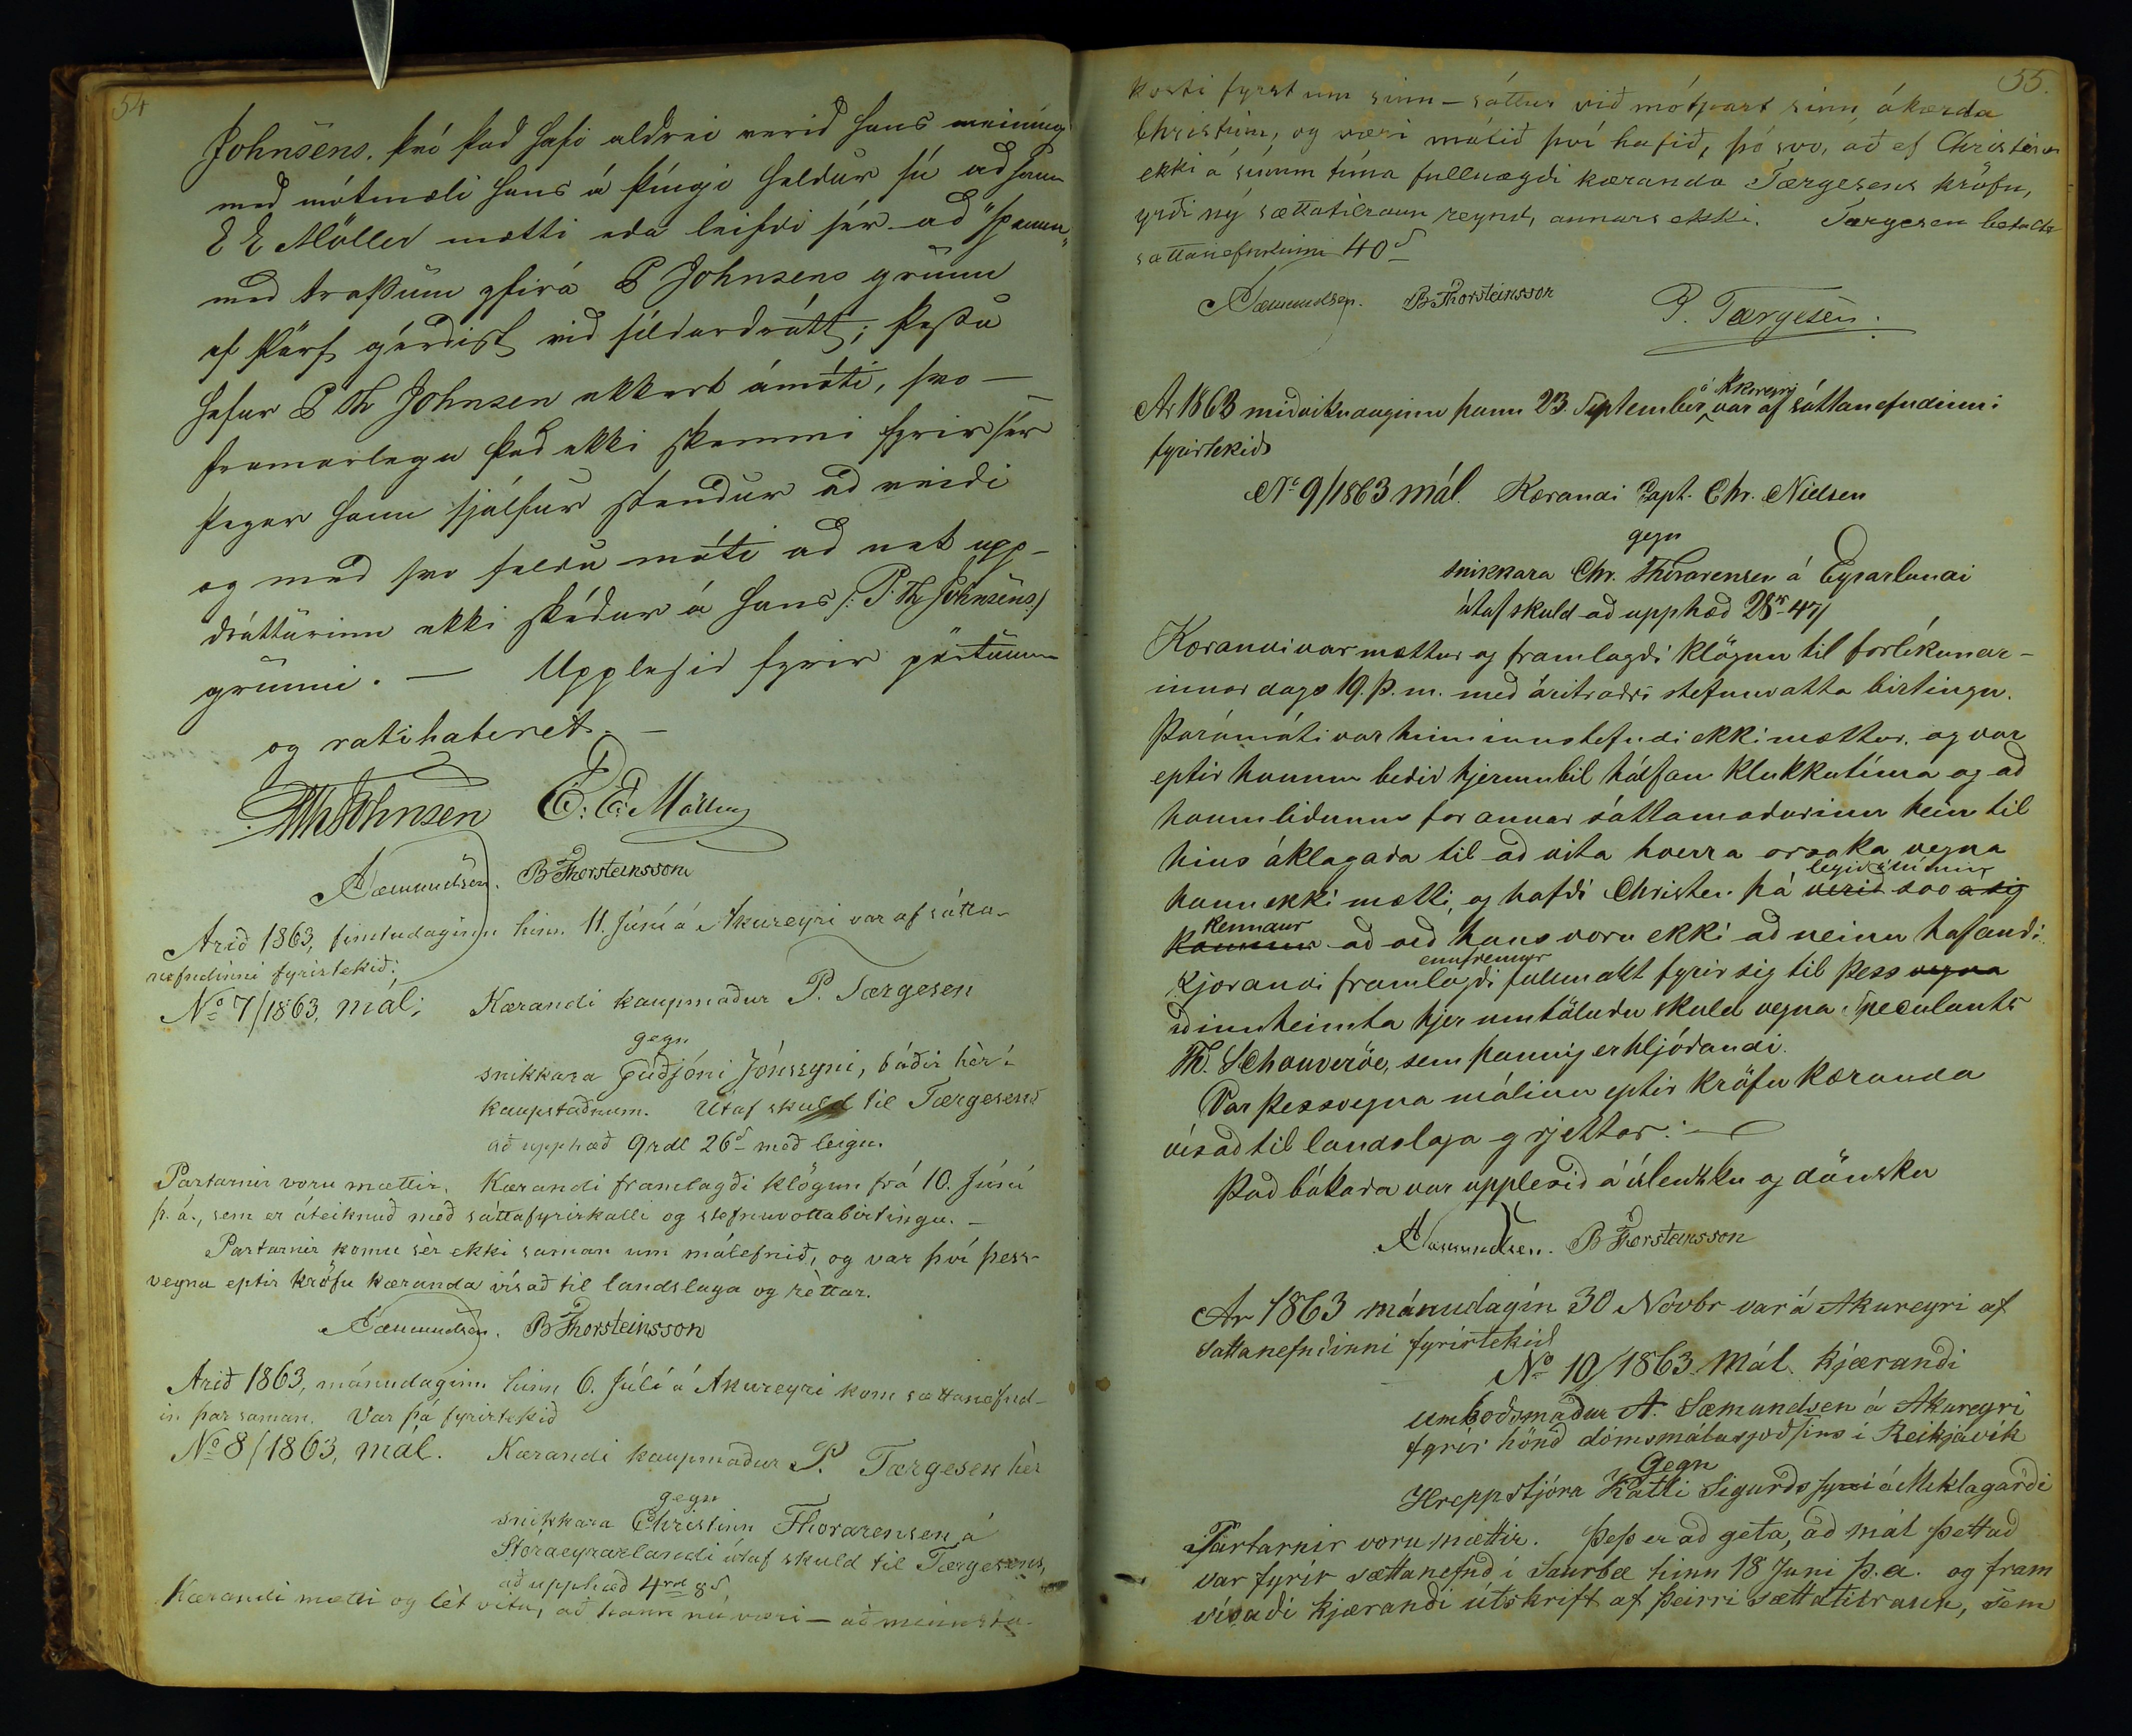 54
Johnsens, því það hafi aldrei verið hans meining
með mótmæli hans á þíngi heldur sú að hann
E E Möller mætti eða leifði sér að "spenna"
með trossum yfirá P Johnsens grunn
ef þörf gérðist við síldardrátt; þessu
hefur P Th Johnsen ekkert ámóti, svo —
framarlega það ekki skemmi fyrir sér
þegar hann sjálfur stendur að veiði
og með svo feldu móti að net upp-
drátturinn ekki skéður á hans /: P. Th Johnsens:/
grunni. — Upplesið fyrir pörtunum
og ratihaberet. —
PThJohnsen E: E: Möller
ASæmundsen. BThorsteinsson
Arið 1863, fimtudaginn hinn 11. Júní á Akureyri var af sátta-
nefndinni fyrirtekið:
No 7/1863, mál; Kærandi kaupmaður P. Tærgesen
gegn
snikkara Guðjóni Jónssyni, báðir hèr í
kaupstaðnum. Útaf skuld til Tærgesens
að upphæð 9rdl 26s með leigu.
Partarnir voru mættir. Kærandi framlagði klögun frá 10. Júní
þ. á., sem er áteiknuð með sáttafyrirkalli og stefnuvottabirtingu. —
Partarnir komu sèr ekki saman um málefnið, og var því þess-
vegna eptir kröfu kæranda vísað til landslaga og rèttar.
ASæmundsen. BThorsteinsson
Arið 1863, mánudaginn hinn 6. Júlí á Akureyri kom sættanefnd-
in þar saman. Var þá fyrirtekið
No 8/1863, mál. Kærandi kaupmaður P. Tærgesen hèr
gegn
snikkara Christinn Thorarensen á
Stóraeyrarlandi útaf skuld til Tærgesens,
að upphæð 4rdl 8s
Kærandi mætti og lèt vita, að hann nú væri — að minnsta
55.
kosti fyrst um sinn — sáttur við mótpart sinn, ákærða
Christinn, og væri málið því hafið, þó svo, að ef Christinn
ekki á sínum tíma fullnægði kæranda Tærgesens kröfu,
yrði ný sættatilraun reynd, annars ekki. Tærgesen betalte
sættanefndinni 40s
ASæmundsen. BThorsteinsson P. Tærgesen.
Ar 1863 miðvikudaginn þann 23. September á Akureyri var af sáttanefndinni
fyrirtekið
No 9/1863 mál. Kærandi Capt. Chr. Nielsen
gegn
snikkara Chr. Thorarensen á Eyrarlandi
útaf skuld að upphæð 28rd 47s
Kærandi var mættur og framlagði klögun til forlíkunar-
innar dags 19. þ. m. með áritaðri stefnuvotta birtingu.
Þarámóti var hinn innstefndi ekki mættur, og var
eptir honum beðið hjerumbil hálfan klukkutíma og að
honum liðunum for annar sáttamaðurinn heim til
hins áklagaða til að vita hverra orsaka vegna
hann ekki mætti, og hafði Christen þá verið legið í rúminu svo a sig
kominn kenndur að orð hans voru ekki að neinu hafandi.
Kjærandi framlagði ennfremur fullmakt fyrir sig til þess vegna
að innheimta hjer umtöluðu skuld vegna Speculants
Th. Schouveröe, sem þannig er hljóðandi.
Var þessvegna málinu eptir kröfu kæranda
vísað til landslaga og rjettar. —
Það bókaða var upplesið á íslendsku og dönsku
ASæmundsen. BThorsteinsson
Ar 1863 mánudagin 30 Novbr var á Akureyri af
Sattanefndinni fyrirtekið
No 10/1863 Mál. Kjærandi
umboðsmaður A. Sæmundsen á Akureyri
fyrir hönd dómsmálasjoðsins i Reikjavik
Gegn
Hreppstjóra Katli Sigurðssyni á Miklagarði
Partarnir voru mættir. Þess er að geta, að mál þettað
var fyrir sættanefnd i Saurbæ hinn 18 Juni þ. a. og fram
vísaði kjærandi útskrift af þeirri sættatilraun, sem